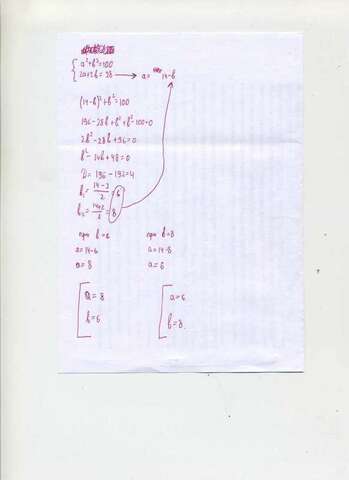 a²+b²=100
2a+2b=28 → a= 14-b
(14-b)²+b²=100
196-28b+b²+b²-100=0
2b²-28b+96=0
b²-14b+48=0
D=196-192=4
b₁=(14-2)/2=6
b₂=(14+2)/2=8
при b=6 при b=8
a=14-6 a=14-8
a=8 a=6
a=8 a=6
b=6 b=8